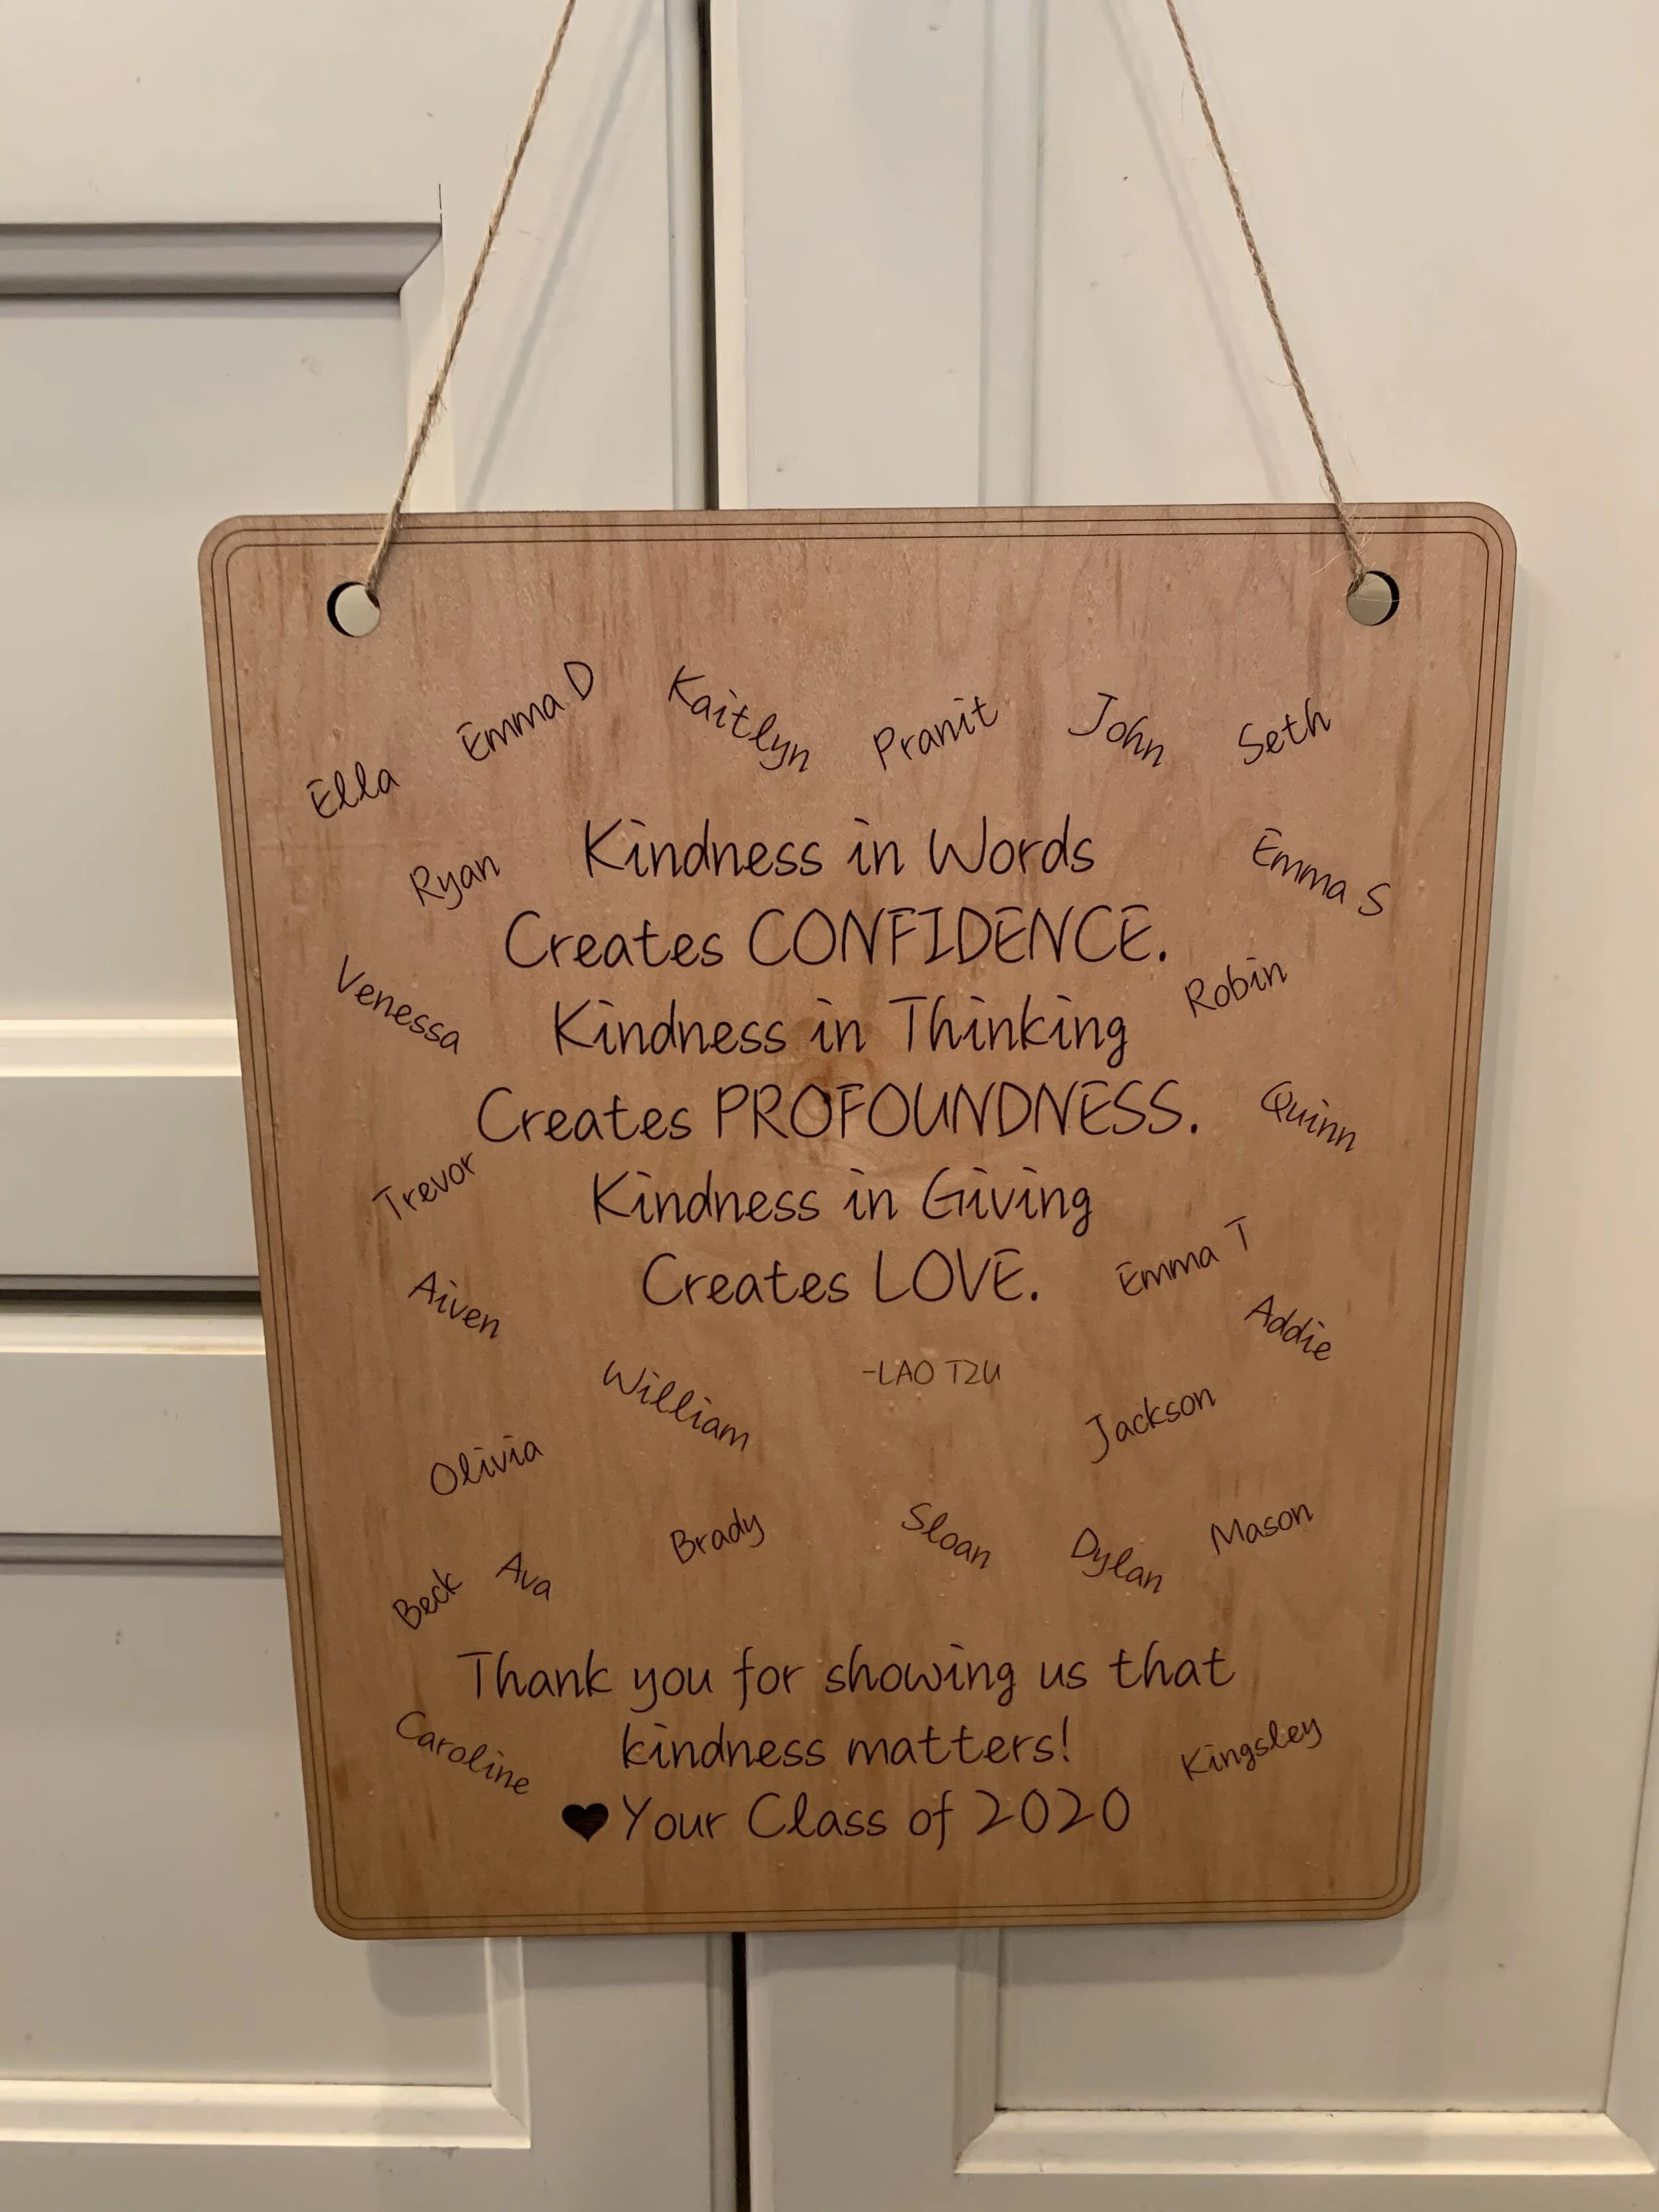 Ella
Emma D
Kaitlyn
Pranit
John
Seth
Ryan
Kindness in Words
Emma S
Creates CONFIDENCE.
Venessa
Kindness in Thinking
Robin
Creates PROFOUNDNESS.
Quinn
Trevor
Kindness in Giving
Creates LOVE.
Emma T
Aiven
Addie
-LAO TZU
William
Jackson
Olivia
Brady
Sloan
Dylan
Mason
Beck
Ava
Thank you for showing us that
kindness matters!
Caroline
Kingsley
♥Your Class of 2020